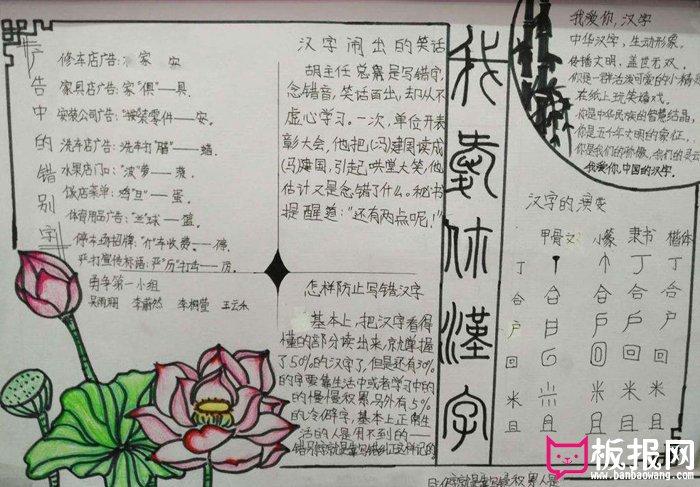 广告中的错别字
家具店广告:家“俱”——具.
安装公司广告:“按”装零件——安.
洗车店广告:洗车打“腊”——蜡.
水果店门口:“波”萝——菠.
饭店菜单:鸡“旦”——蛋.
体育用品广告:“兰”球——篮.
停车场招牌:“仃”车收费——停.
严打宣传标语:严“历”打击——厉.
勇争第一小组
汉字闹出的笑话
胡主任总是写错字,
念错音,笑话百出,却从不
虚心学习。一次,单位开表
彰大会,他把(冯)建国读成
(马)建国,引起哄堂大笑,他
估计又是念错了什么。秘书
提醒道:“还有两点呢!”
怎样防止写错汉字
基本上,把汉字看得
懂的部分读出来,就掌握
了50%的汉字了,但是还有
的字要靠生活中或者学习中的
的慢慢积累,另外有5%
的冷僻字,基本上正常生
活的人是用不到的——
我爱你汉字
我爱你,汉字
中华汉字,生动形象,
传播文明,盖世无双.
你是一群活泼可爱的小精灵
在纸上玩笑嬉戏.
你是中华民族的智慧结晶,
你是五千年文明的象征...
你是我们的骄傲,我们的
我爱你,中国的汉字.
汉字的演变
甲骨文 小篆 隶书 楷体
丁 丁 丁
合 合 合 合
户 户 户
回 回 回 回
米 米 米 米
且 且 且 且
板报网
www.banbaowang.com